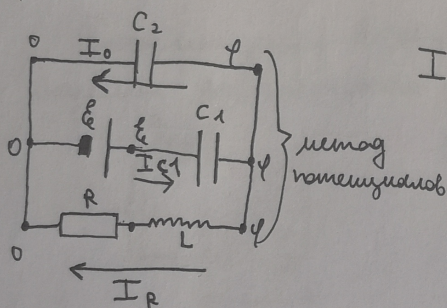 C₂
0 I₀ φ
I
ℰ ℰ C1
0 I_C1 φ
метод
потенциалов
R L φ
0
I_R